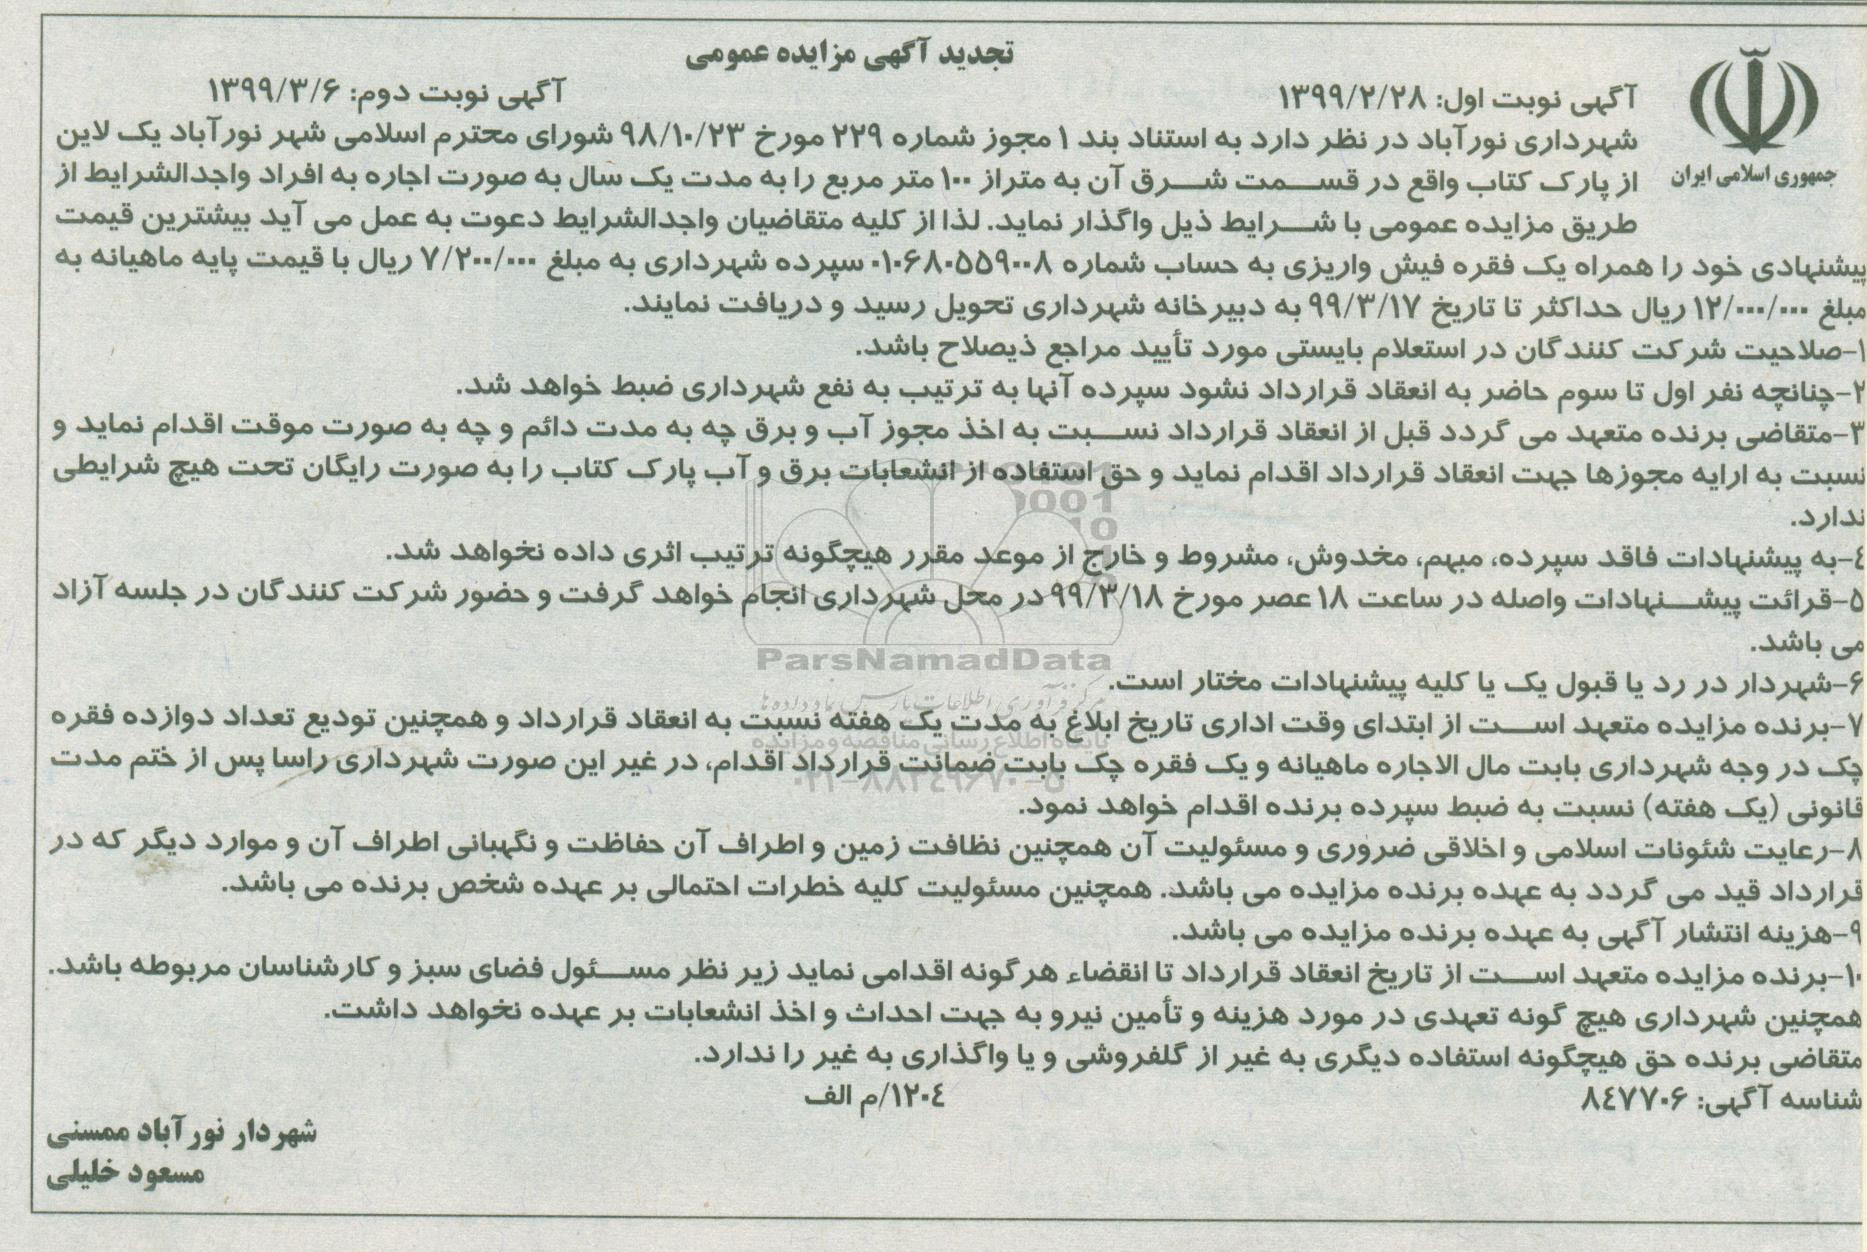 تجدید آگهی مزایده عمومی
آگهی نوبت اول: ۱۳۹۹/۲/۲۸
آگهی نوبت دوم: ۱۳۹۹/۳/۶
جمهوری اسلامی ایران
شهرداری نورآباد در نظر دارد به استناد بند ۱ مجوز شماره ۲۲۹ مورخ ۹۸/۱۰/۲۳ شورای محترم اسلامی شهر نورآباد یک لاین
از پارک کتاب واقع در قسمت شرق آن به متراز ۱۰۰ متر مربع را به مدت یک سال به صورت اجاره به افراد واجدالشرایط از
طریق مزایده عمومی با شرایط ذیل واگذار نماید. لذا از کلیه متقاضیان واجدالشرایط دعوت به عمل می آید بیشترین قیمت
پیشنهادی خود را همراه یک فقره فیش واریزی به حساب شماره ۰۱۰۶۸۰۵۵۹۰۰۸ سپرده شهرداری به مبلغ ۷/۲۰۰/۰۰۰ ریال با قیمت پایه ماهیانه به
مبلغ ۱۲/۰۰۰/۰۰۰ ریال حداکثر تا تاریخ ۹۹/۳/۱۷ به دبیرخانه شهرداری تحویل رسید و دریافت نمایند.
۱-صلاحیت شرکت کنندگان در استعلام بایستی مورد تأیید مراجع ذیصلاح باشد.
۲-چنانچه نفر اول تا سوم حاضر به انعقاد قرارداد نشود سپرده آنها به ترتیب به نفع شهرداری ضبط خواهد شد.
۳-متقاضی برنده متعهد می گردد قبل از انعقاد قرارداد نسبت به اخذ مجوز آب و برق چه به مدت دائم و چه به صورت موقت اقدام نماید و
نسبت به ارایه مجوزها جهت انعقاد قرارداد اقدام نماید و حق استفاده از انشعابات برق و آب پارک کتاب را به صورت رایگان تحت هیچ شرایطی
ندارد.
۴-به پیشنهادات فاقد سپرده، مبهم، مخدوش، مشروط و خارج از موعد مقرر هیچگونه ترتیب اثری داده نخواهد شد.
۵-قرائت پیشنهادات واصله در ساعت ۱۸ عصر مورخ ۹۹/۳/۱۸ در محل شهرداری انجام خواهد گرفت و حضور شرکت کنندگان در جلسه آزاد
می باشد.
ParsNamadData
۶-شهردار در رد یا قبول یک یا کلیه پیشنهادات مختار است.
مرکز فرآوری اطلاعات پارس نماد داده ها
۷-برنده مزایده متعهد است از ابتدای وقت اداری تاریخ ابلاغ به مدت یک هفته نسبت به انعقاد قرارداد و همچنین تودیع تعداد دوازده فقره
پایگاه اطلاع رسانی مناقصه و مزایده
چک در وجه شهرداری بابت مال الاجاره ماهیانه و یک فقره چک بابت ضمانت قرارداد اقدام، در غیر این صورت شهرداری راسا پس از ختم مدت
۰۲۱-۸۸۳۴۹۶۷۰-۵
قانونی (یک هفته) نسبت به ضبط سپرده برنده اقدام خواهد نمود.
۸-رعایت شئونات اسلامی و اخلاقی ضروری و مسئولیت آن همچنین نظافت زمین و اطراف آن حفاظت و نگهبانی اطراف آن و موارد دیگر که در
قرارداد قید می گردد به عهده برنده مزایده می باشد. همچنین مسئولیت کلیه خطرات احتمالی بر عهده شخص برنده می باشد.
۹-هزینه انتشار آگهی به عهده برنده مزایده می باشد.
۱۰-برنده مزایده متعهد است از تاریخ انعقاد قرارداد تا انقضاء هرگونه اقدامی نماید زیر نظر مسئول فضای سبز و کارشناسان مربوطه باشد.
همچنین شهرداری هیچ گونه تعهدی در مورد هزینه و تأمین نیرو به جهت احداث و اخذ انشعابات بر عهده نخواهد داشت.
متقاضی برنده حق هیچگونه استفاده دیگری به غیر از گلفروشی و یا واگذاری به غیر را ندارد.
شناسه آگهی: ۸۴۷۷۰۶
۱۲۰۴/م الف
شهردار نورآباد ممسنی
مسعود خلیلی